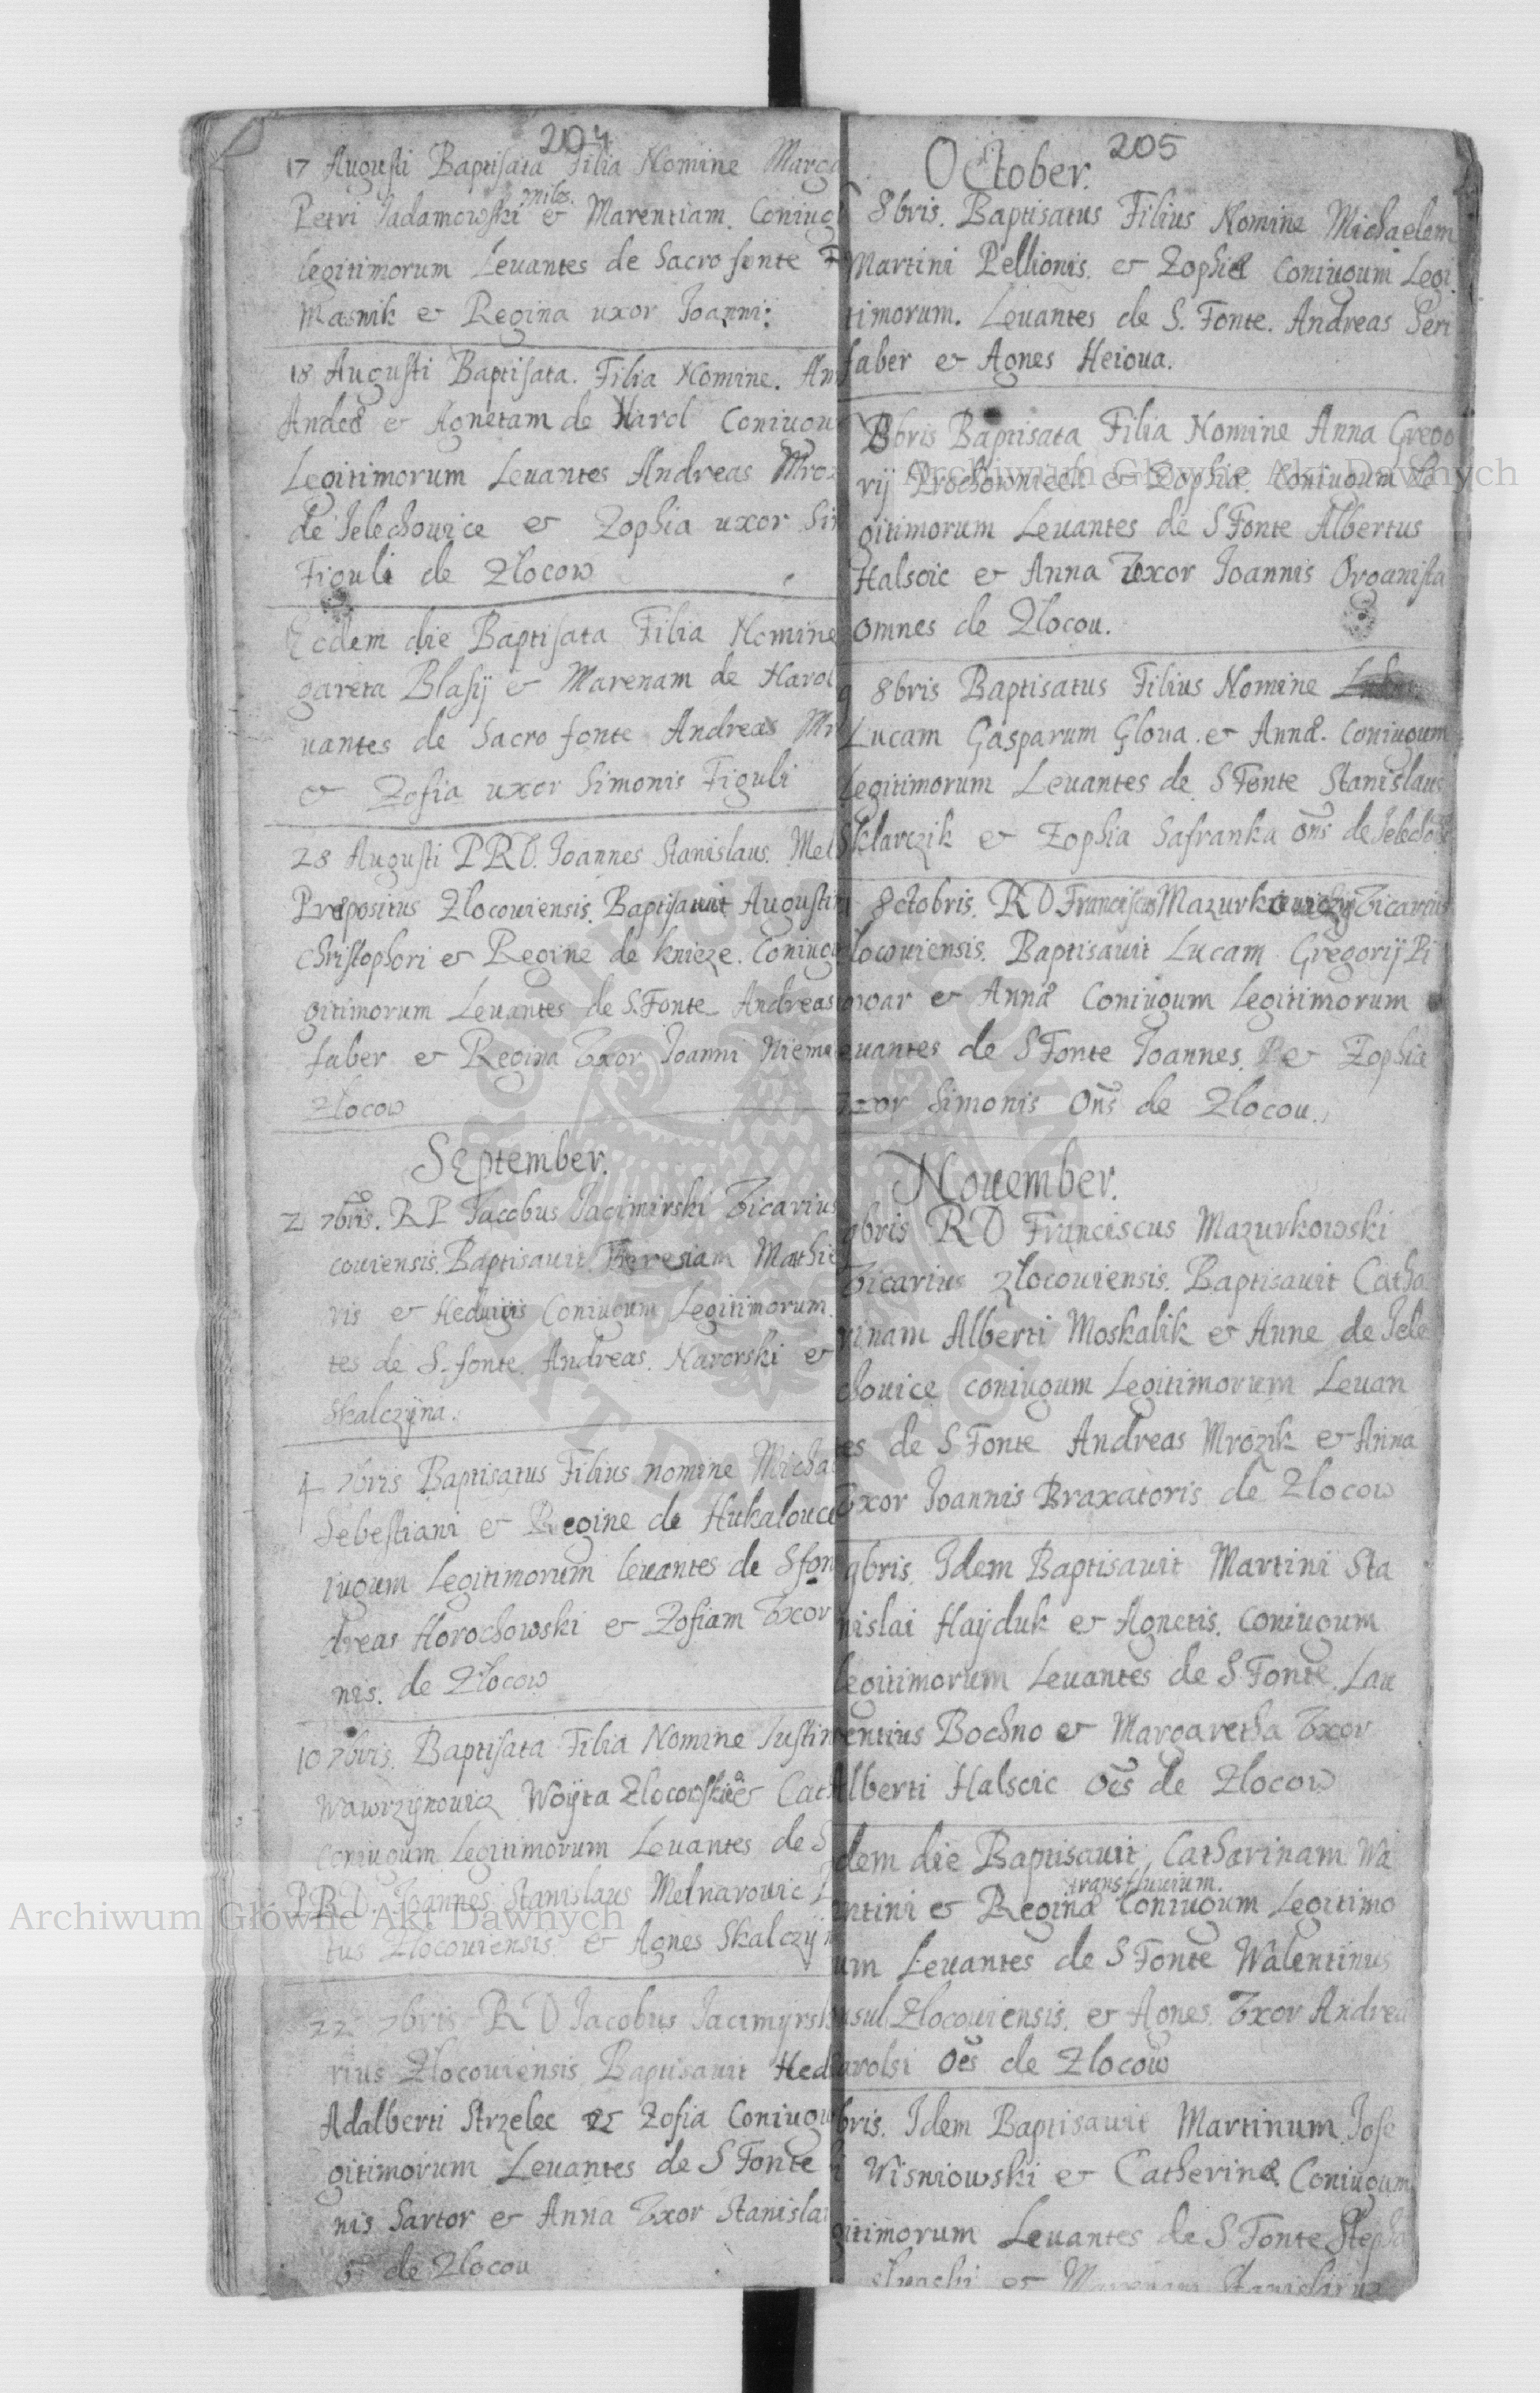 204
17 Augusti Baptisata Filia Nomine Marga
miles.
Petri Jadamowski & Marentiam. Coniug
legitimorum Leuantes de Sacro fonte
Masnik & Regina uxor Joanni:
18 Augusti Baptisata. Filia Nomine. An
& Agnetam de Harol Coniugu
Legitimorum Leuantes Andreas Mroz
de Jelechowice & Zophia uxor Sim
Figuli de Zlocow
Eodem die Baptisata Filia Nomine
gareta Blasij & Marenam de Harol
uantes de Sacro fonte Andreas Mr
& Zofia uxor Simonis Figuli
28 Augusti P.R.D. Joannes Stanislaus. Mel
Prepositus Zlocouiensis. Baptisauit Augustin
Christophori & Regine de Knieze. Coniug
gitimorum Leuantes de S. Fonte Andreas
faber & Regina Vxor Joanni Nieme
Zlocow
September.
2 7bris. R P Jacobus Jacimirski Vicarius
couiensis. Baptisauit Theresiam Mathie
ris & Heduigis Coniugum Legitimorum.
tes de S. fonte. Andreas. Narorski &
Skalczyna.
4 7bris Baptisatus Filius nomine Micha
Sebestiani & Regine de Hukalouce
iugum Legitimorum leuantes de S fon
dreas Horochowski & Zofiam Vxor
nis. de Zlocow
10 7bris. Baptisata Filia Nomine Justin
Wawrzynowicz Woyta Zlocowski & Cath
coniugum Legitimorum Leuantes de S
P.R.D. Joannes Stanislaus Melnarowic
tus Zlocouiensis & Agnes Skalczyn
22 7bris R D Jacobus Jacimyrsk
rius Zlocouiensis Baptisauit Hed
Adalberti Strzelec & Zofia Coniugu
gitimorum Leuantes de S Fonte
nis Sartor & Anna Vxor Stanislai
de Zlocou
205
October.
8bris. Baptisatus Filius Nomine Michaelem
Martini Pellionis. & Zophiæ Coniugum Legi
timorum. Leuantes de S. Fonte. Andreas Seri
faber & Agnes Heioua.
8bris Baptisata Filia Nomine Anna Grego
rij Prochowniech & Zophia. Coniugum Le
gitimorum Leuantes de S Fonte Albertus
Halscic & Anna Vxor Joannis Organista
omnes de Zlocou.
8bris Baptisatus Filius Nomine
Lucam Gasparum Gloua. & Annæ. Coniugum
Legitimorum Leuantes de S Fonte Stanislaus
Sklarczik & Zophia Safranka ons de Jelecho
8ctobris. R D Franciscus Mazurkowski Vicarius
locouiensis. Baptisauit Lucam Gregorij Pi
owar & Annæ Coniugum Legitimorum
euantes de S Fonte Joannes. & Zophia
Vxor Simonis Ons de Zlocou.
November.
9bris R D Franciscus Mazurkowski
Vicarius Zlocouiensis. Baptisauit Catha
rinam Alberti Moskalik & Anne de Jele
chouice coniugum Legitimorum Leuan
es de S Fonte Andreas Mrozik & Anna
Vxor Joannis Braxatoris de Zlocow
9bris. Idem Baptisauit Martini Sta
nislai Hayduk & Agnetis. coniugum
legitimorum Leuantes de S Fonte. Lau
entius Bochno & Margaretha Vxor
Alberti Halscic oēs de Zlocow
dem die Baptisauit, Catharinam Wa
transfluuium.
ntini & Reginæ Coniugum Legitimo
um Leuantes de S Fonte Walentinus
sul Zlocouiensis. & Agnes. Vxor Andreæ
arolsi oēs de Zlocow
bris. Idem Baptisauit Martinum Jose
i Wisniowski & Catherinæ Coniugum
gitimorum Leuantes de S Fonte Stepha
& Stanislai
Archiwum Główne Akt Dawnych
Archiwum Główne Akt Dawnych
ARCHIWUM GŁÓWNE AKT DAWNYCH